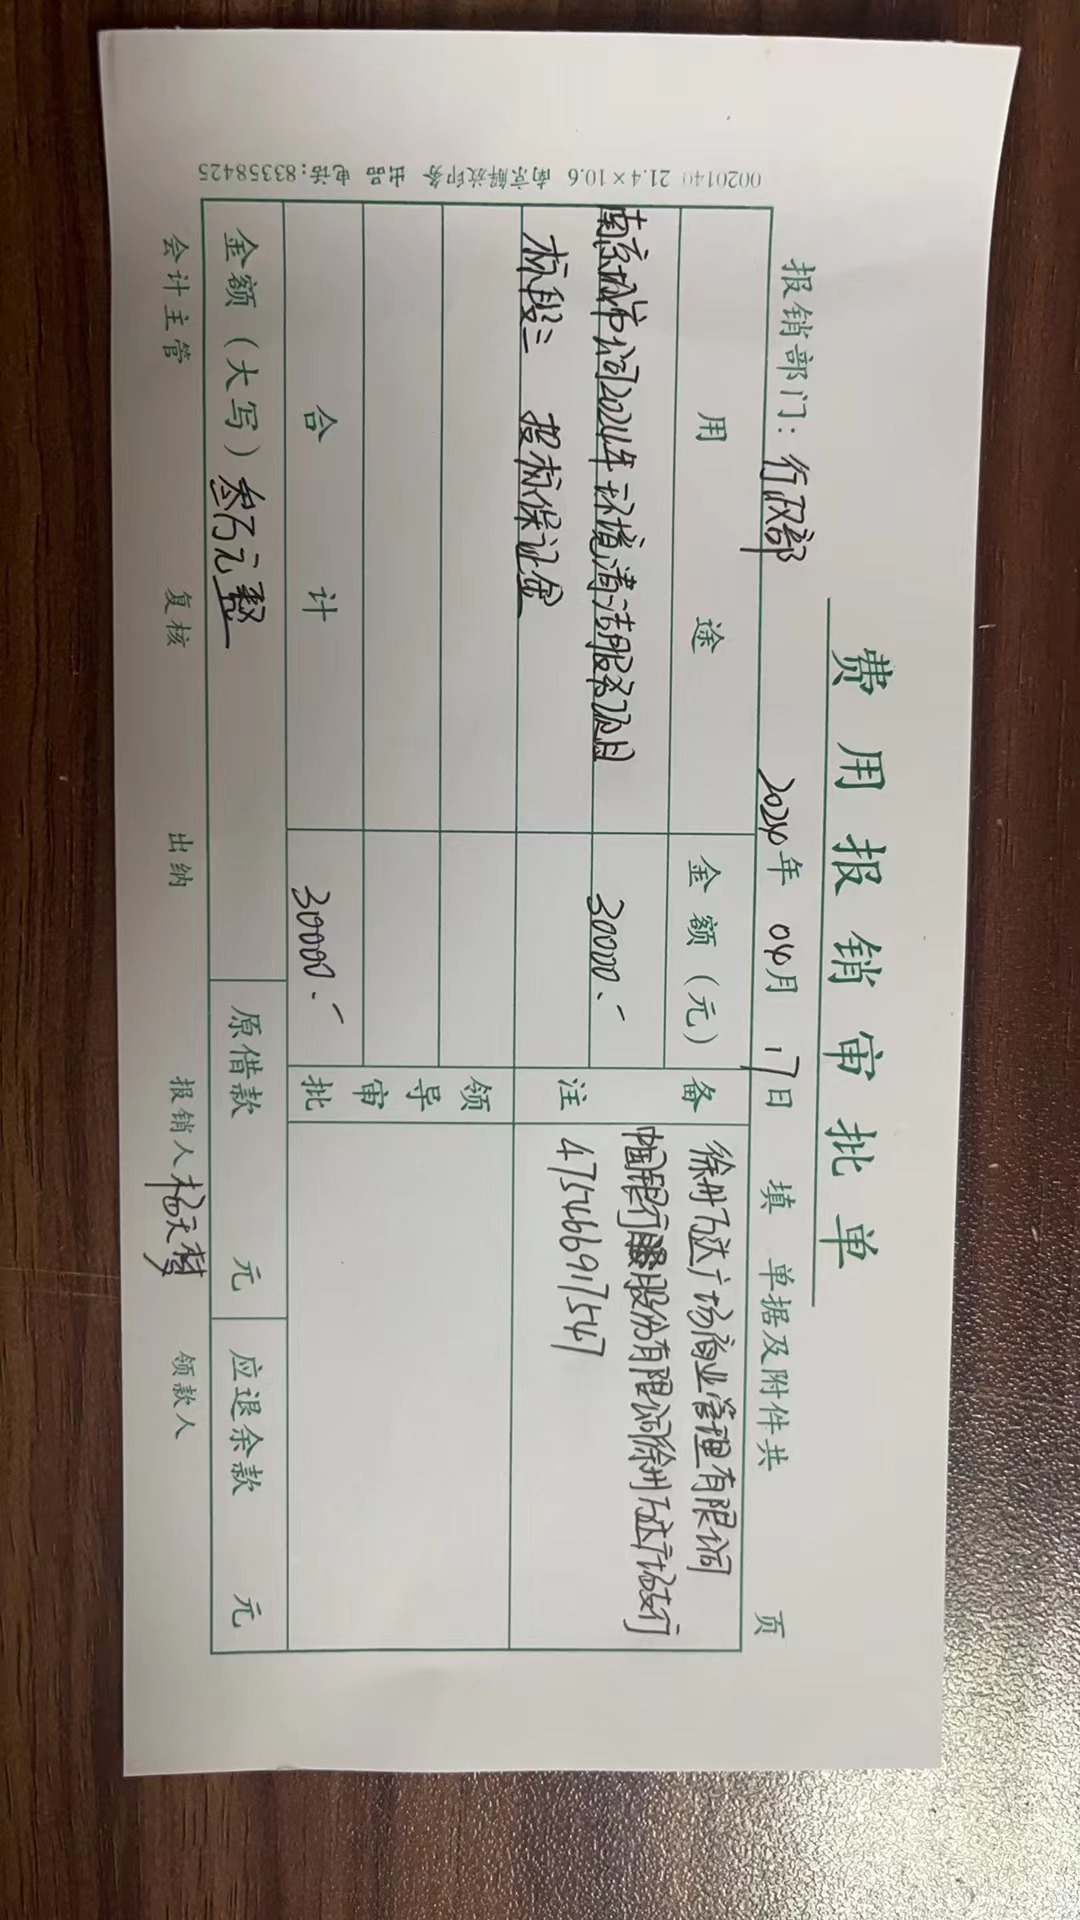 费用报销审批单
报销部门：行政部 2024年 04月 17日 填 单据及附件共 页
用途 金额（元） 备注
南京城市公司2024年环境清洁服务项目 30000.-
标段三 投标保证金
徐州万达广场商业管理有限公司
中国银行股份有限公司徐州万达广场支行
475466917547
合计 30000.-
领导审批
金额（大写）叁万元整 原借款 元 应退余款 元
会计主管 复核 出纳 报销人 杨天 领款人
0020140 21.4×10.6 南京解放印务 出品 电话：83358425